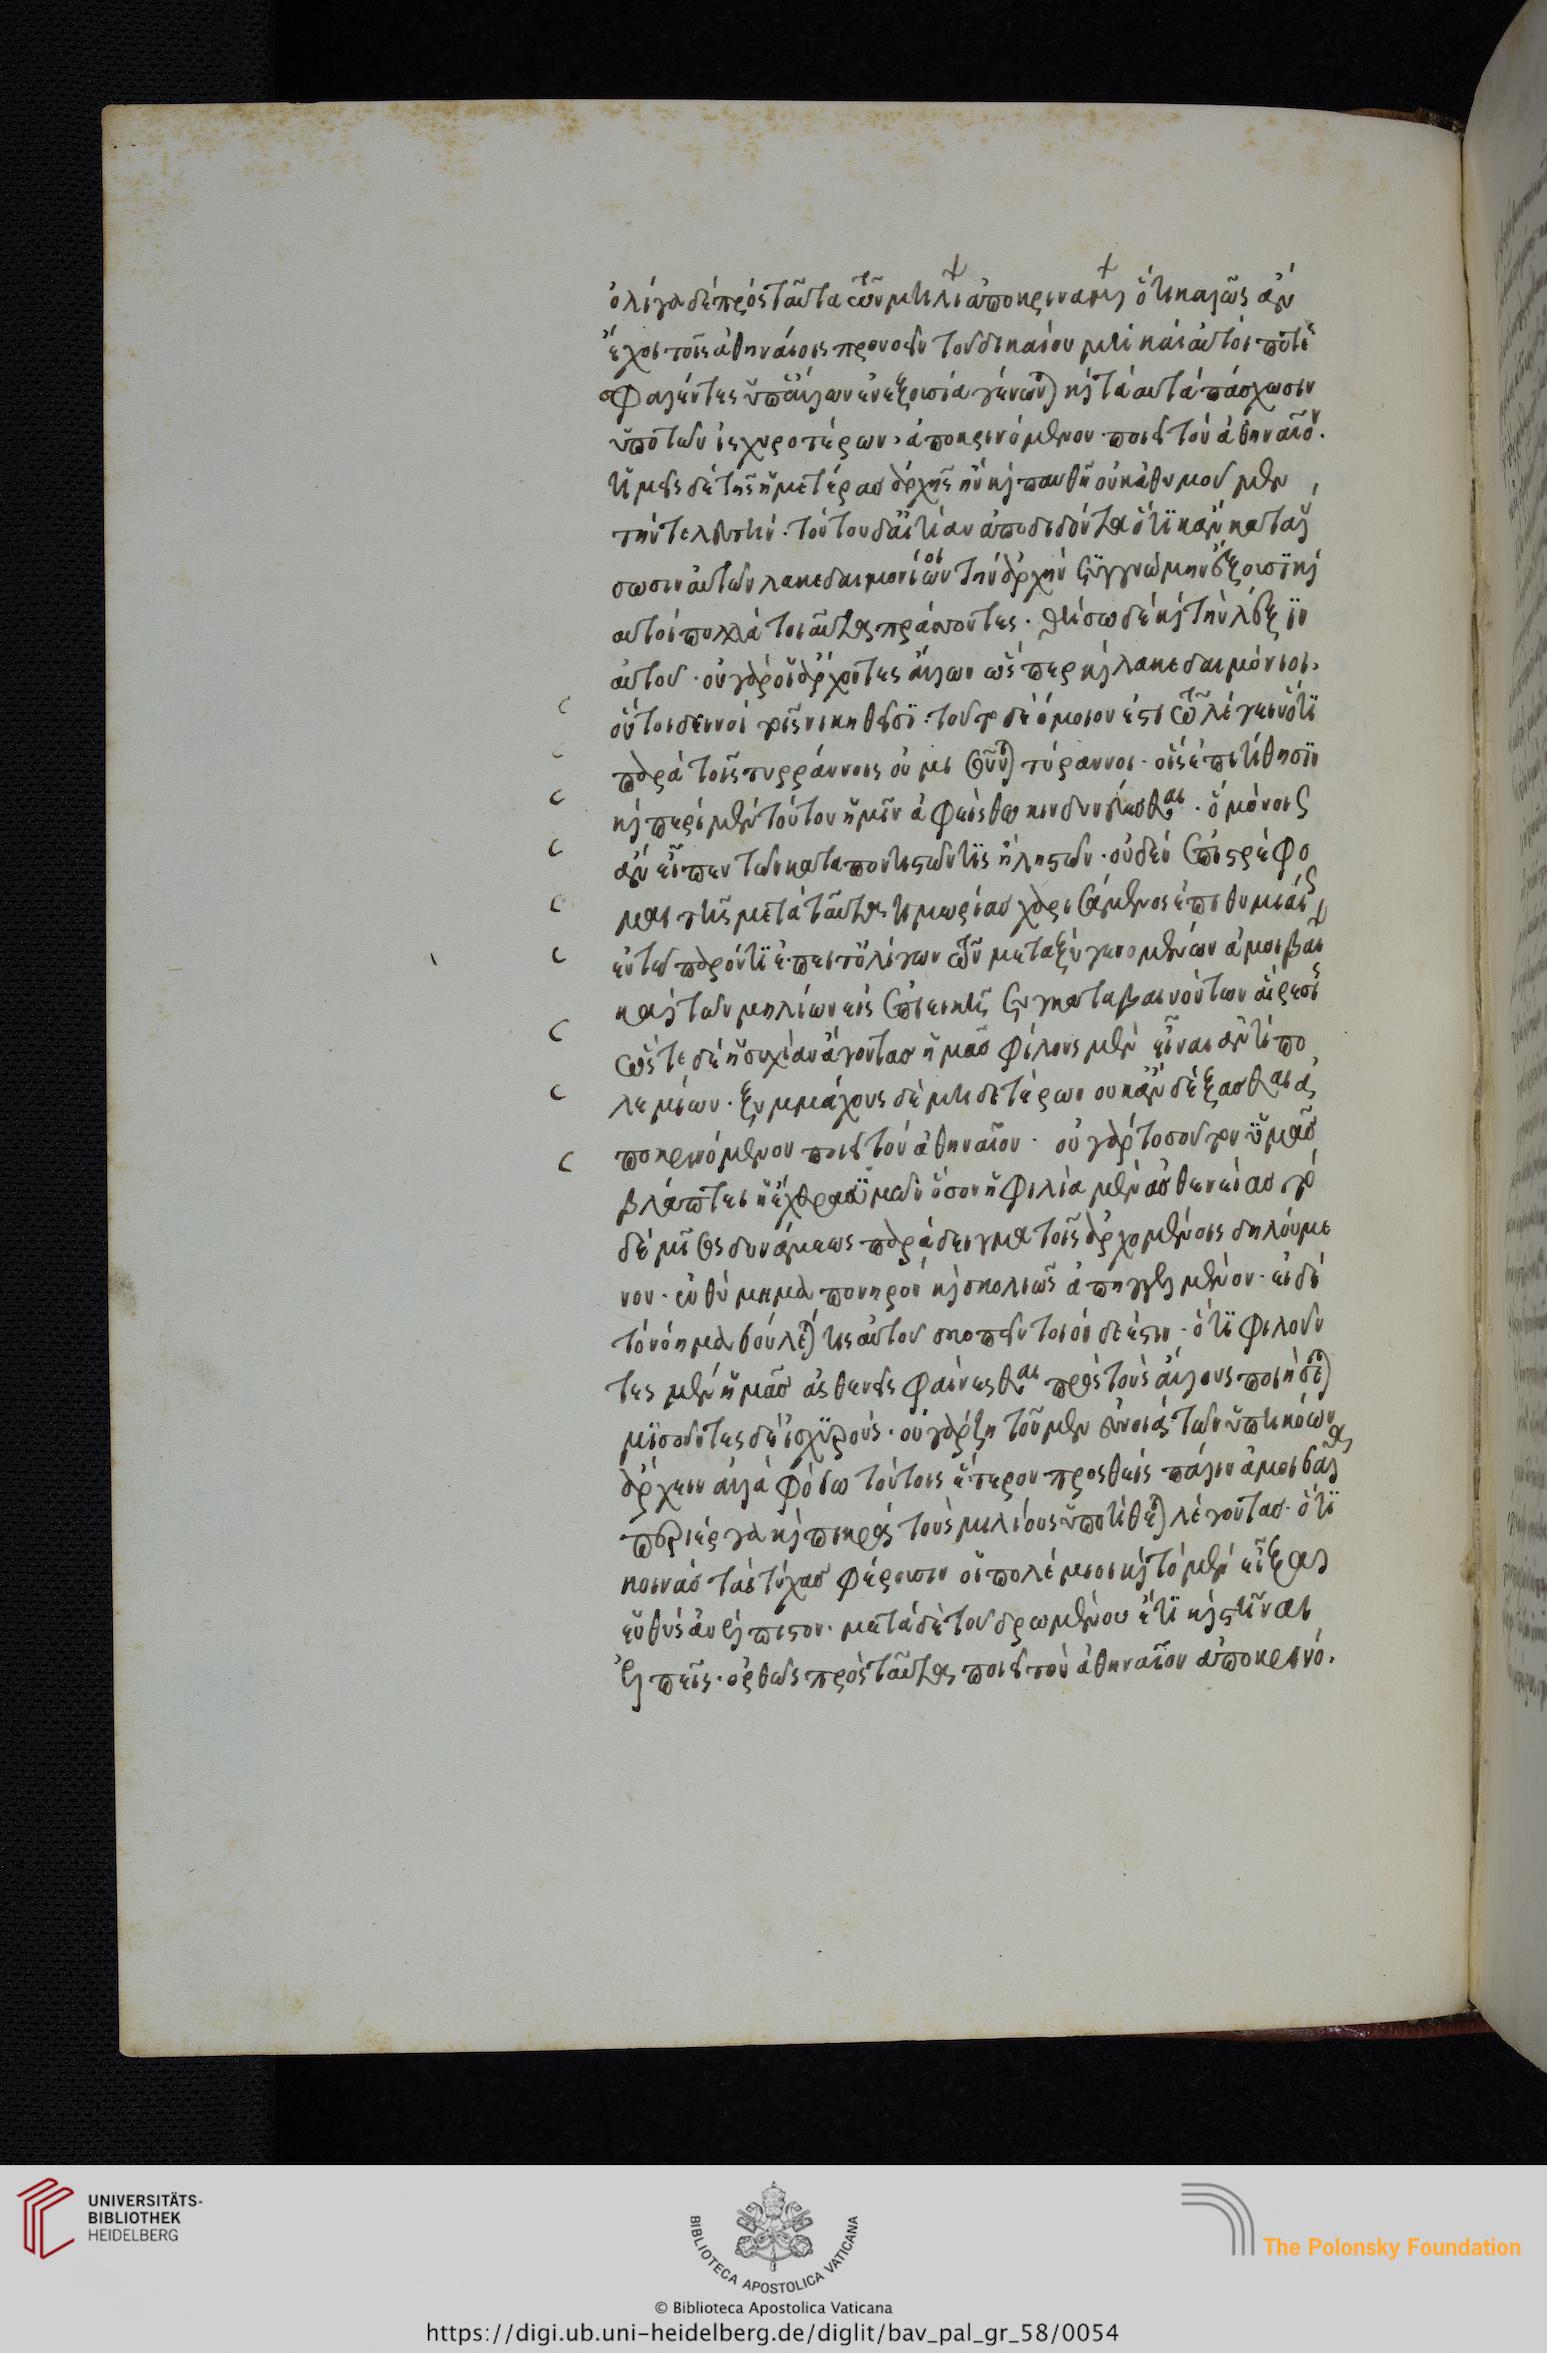 ὀλίγα δὲ πρὸς ταῦτα τῶν μηλί ἀποκριναμ ὅτι καλῶς ἂν
ἔχοι τοῖς ἀθηναίοις προνοεῖν τοῦ δικαίου μὴ καὶ αὐτοί ποτε
σφαλέντες ὑπ' ἄλλων ἐν ἐξουσία γένωνται καὶ ταὐτὰ πάσχωσιν
ὑπὸ τῶν ἰσχυροτέρων, ἀποκρινόμενον ποιεῖ τὸν ἀθηναῖον.
ἡμεῖς δὲ τῆς ἡμετέρας ἀρχῆς ἢν καὶ παυθῆ οὐκ ἀθυμοῦμεν
τὴν τελευτήν. τούτου δ' αἰτίαν ἀποδιδόντα ὅτι κἂν καταλύ
σωσιν αὐτῶν λακεδαιμόνιοι τὴν ἀρχὴν συγγνώμην ἕξουσι καὶ
αὐτοὶ πολλὰ τοιαῦτα πράττοντες. θήσω δὲ καὶ τὴν λέξιν
αὐτοῦ. οὐ γὰρ οἱ ἄρχοντες ἄλλων ὥσπερ καὶ λακεδαιμόνιοι,
οὗτοι δεινοὶ τοῖς νικηθεῖσι. τούτω δὲ ὅμοιόν ἐστι τῶ λέγειν ὅτι
παρὰ τοῖς τυράννοις οὐ μισοῦνται τύραννοι. οἷς ἐπιτίθησιν
καὶ περὶ μὲν τούτου ἡμῖν ἀφείσθω κινδυνεύεσθαι. ὃ μόλις
ἂν εἶπεν τῶν καταποντιστῶν τις ἢ ληστῶν. οὐδὲν ἐπιστρέφο
μαι τῆς μετὰ ταῦτα τιμωρίας χαρισάμενος ἐπιθυμίαις
ἐν τῶ παρόντι ἔπειτ' ὀλίγων τῶν μεταξὺ γενομένων ἀμοιβαί
καὶ τῶν μηλίων εἰς ἐπιεικῆ συγκαταβαινόντων αἵρεσι
ὥστε δὲ ἡσυχίαν ἄγοντας ἡμᾶς φίλους μὲν εἶναι ἀντὶ πο
λεμίων. ξυμμάχους δὲ μηδετέρων οὐκ ἂν δέξασθαι ἀ
ποκρινόμενον ποιεῖ τὸν ἀθηναῖον. οὐ γὰρ τοσοῦτον ὑμᾶς
βλάπτει ἡ ἔχθρα ὑμῶν ὅσον ἡ φιλία μὲν ἀσθενείας τὸ
δὲ μῖσος δυνάμεως παράδειγμα τοῖς ἀρχομένοις δηλούμε
νον. ἐνθύμημα πονηρὸν καὶ σκολιῶς ἀπηγγελμένον. εἰ δέ
τὸ νόημα βούλεταί τις αὐτοῦ σκοπεῖν τοιόνδε ἐστιν. ὅτι φιλοῦν
τες μὲν ἡμᾶς ἀσθενεῖς φαίνεσθαι πρὸς τοὺς ἄλλους ποιήσετε
μισοῦντες δὲ ἰσχυρούς. οὐ γὰρ ζητοῦμεν εὐνοίας τῶν ὑπηκόων
ἄρχειν ἀλλὰ φόβω τούτοις ἕτερον προσθεὶς πάλιν ἀμοιβὰς
περίεργα καὶ πικρὰς τοὺς μηλίους ὑποτίθεται λέγοντας. ὅτι
κοινὰς τὰς τύχας φέρουσιν οἱ πολέμιοι καὶ τὸ μὲν εἶξαι
εὐθὺς ἀνέλπιστον. μετὰ δὲ τοῦ δρωμένου ἔτι καὶ στῆναι
ἐλπὶς. ὀρθῶς πρὸς ταῦτα ποιεῖ τὸν ἀθηναῖον ἀποκρινό.
UNIVERSITÄTS-
BIBLIOTHEK
HEIDELBERG
BIBLIOTECA APOSTOLICA VATICANA
The Polonsky Foundation
© Biblioteca Apostolica Vaticana
https://digi.ub.uni-heidelberg.de/diglit/bav_pal_gr_58/0054